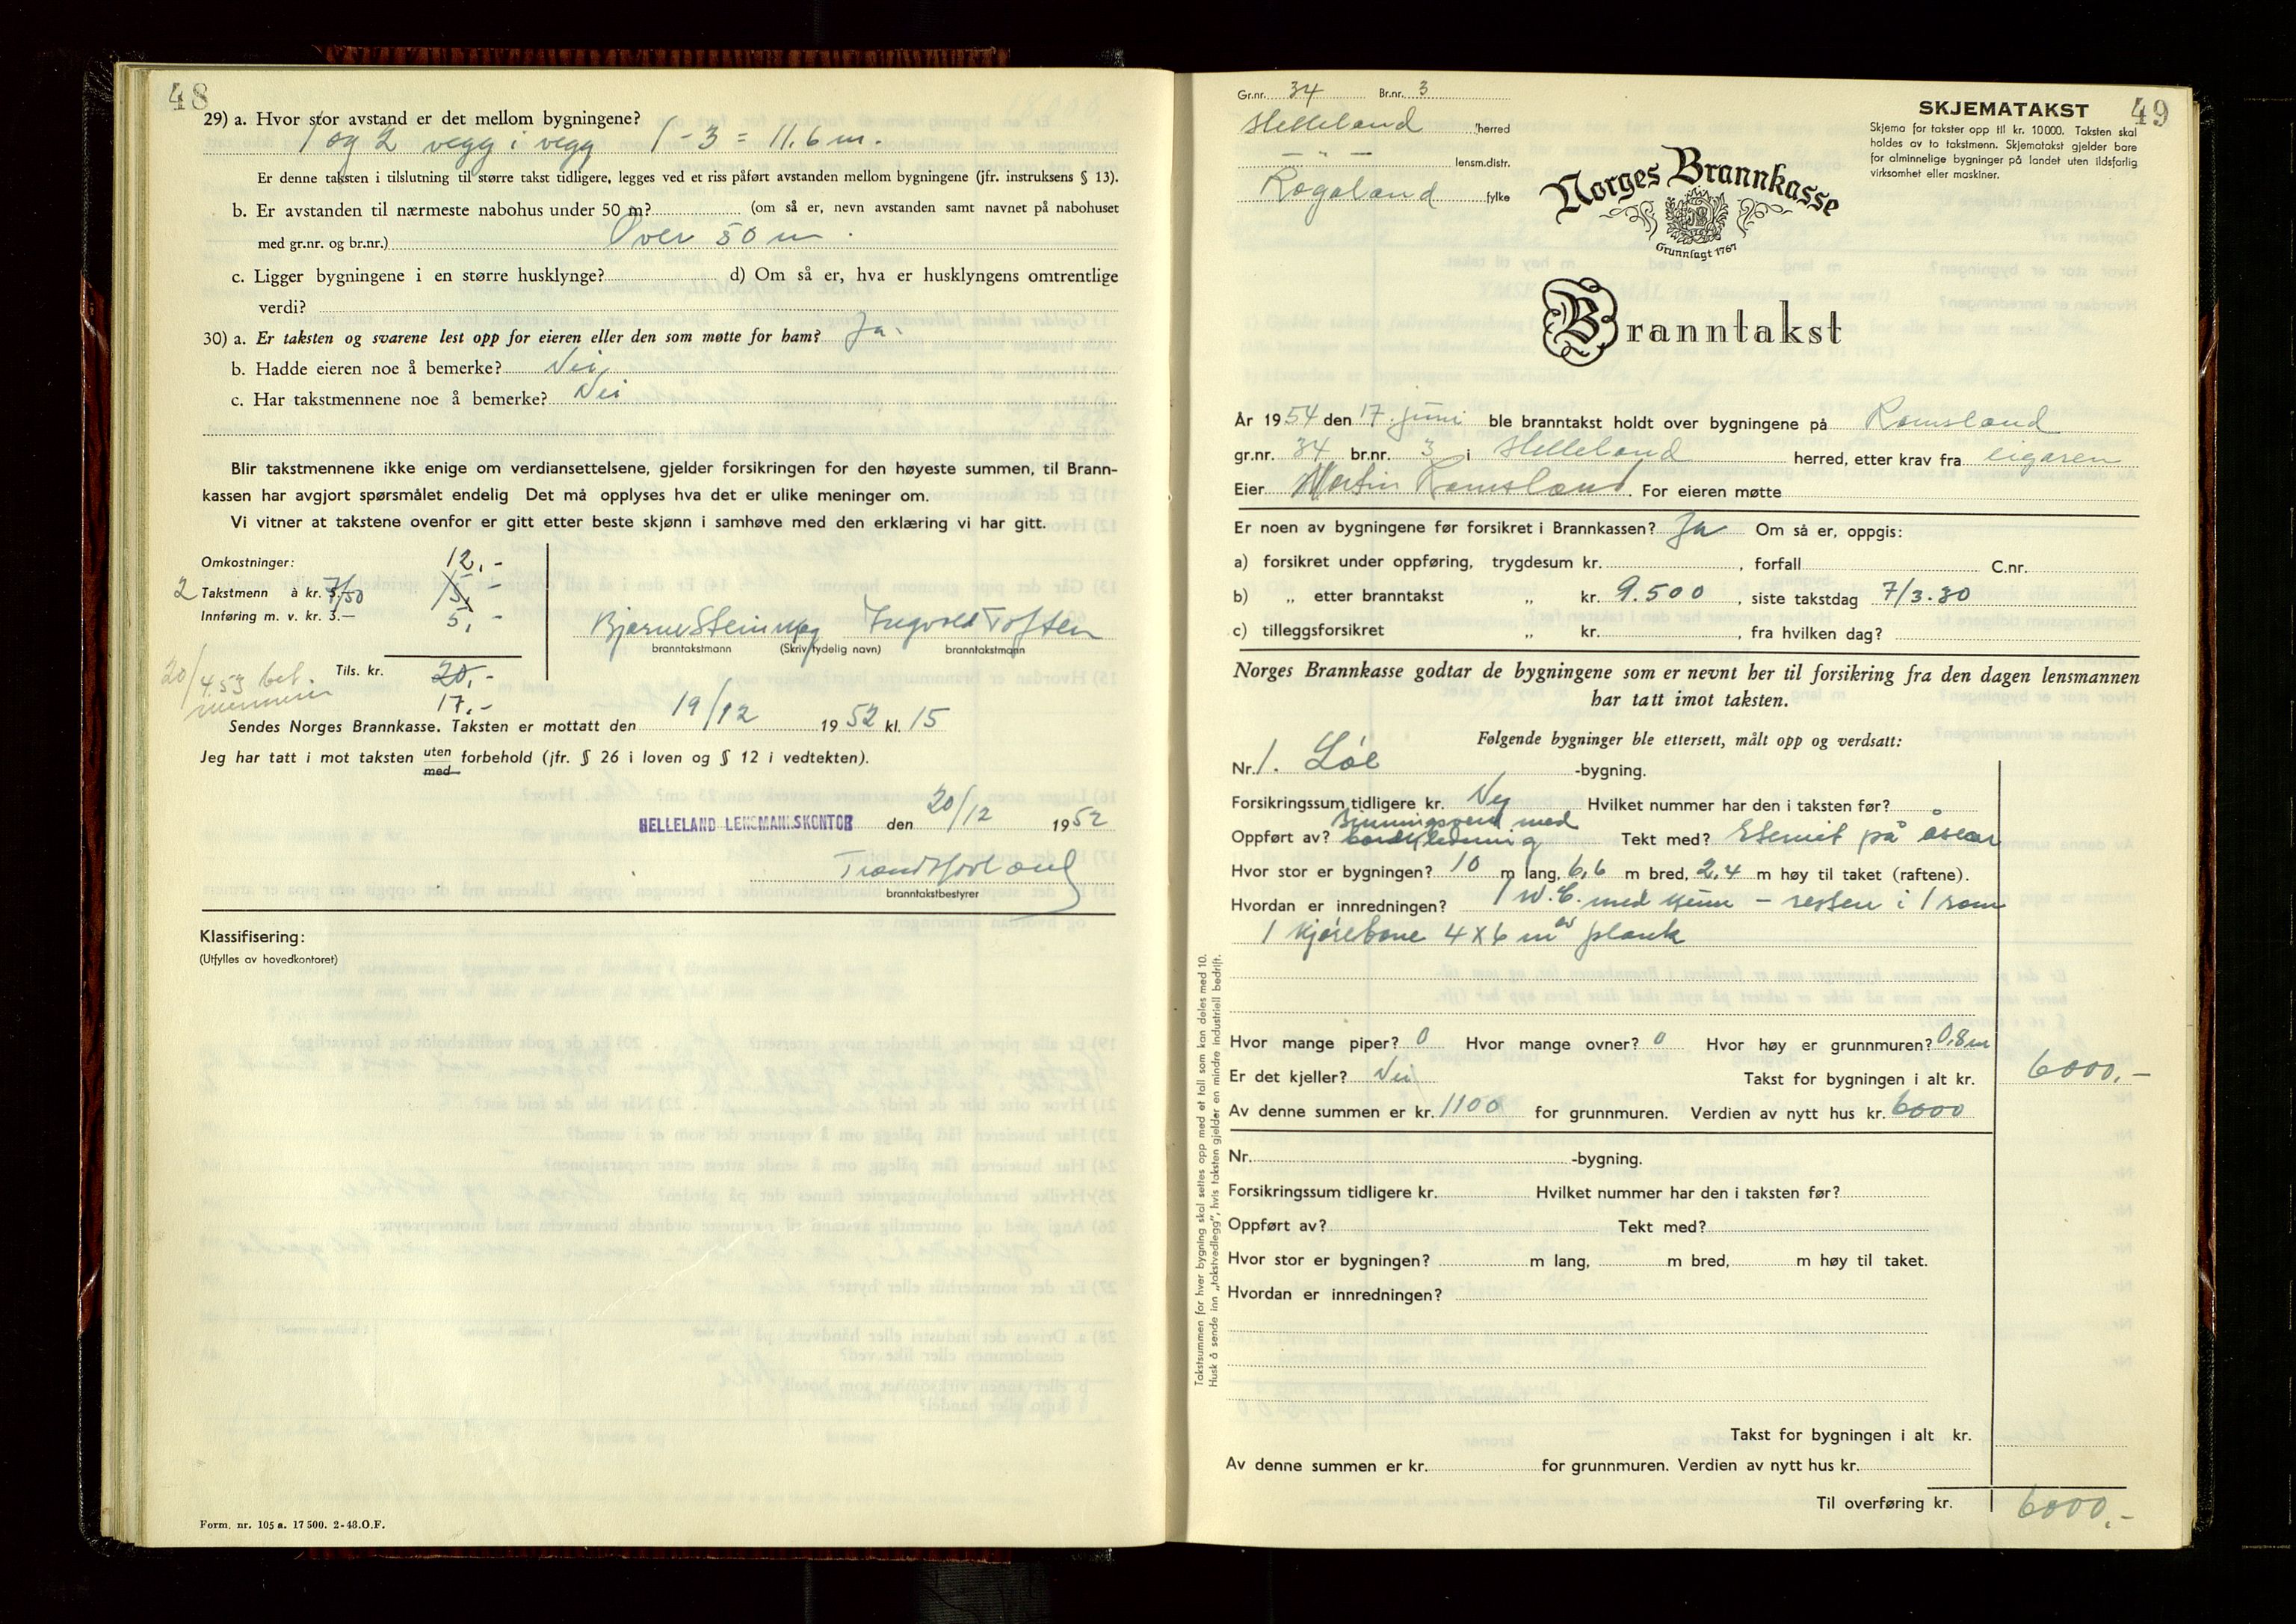 48
29) a. Hvor stor avstand er det mellom bygningene?
1 og 2 vegg i vegg 1 - 3 = 11.6 m.
Er denne taksten i tilslutning til større takst tidligere, legges ved et riss påført avstanden mellom bygningene (jfr. instruksens § 13).
b. Er avstanden til nærmeste nabohus under 50 m? (om så er, nevn avstanden samt navnet på nabohuset
med gr.nr. og br.nr.) Over 50 m.
c. Ligger bygningene i en større husklynge? d) Om så er, hva er husklyngens omtrentlige
verdi?
30) a. Er taksten og svarene lest opp for eieren eller den som møtte for ham? Ja.
b. Hadde eieren noe å bemerke? Nei
c. Har takstmennene noe å bemerke? Nei
Blir takstmennene ikke enige om verdiansettelsene, gjelder forsikringen for den høyeste summen, til Brann-
kassen har avgjort spørsmålet endelig Det må opplyses hva det er ulike meninger om.
Vi vitner at takstene ovenfor er gitt etter beste skjønn i samhøve med den erklæring vi har gitt.
Omkostninger: 12,-
2 Takstmenn à kr. 7/50 15,-
Innføring m. v. kr. 3.— 5,-
Bjarne Steinsg Ingvald Toften
branntakstmann (Skriv tydelig navn) branntakstmann
Tils. kr. 20,-
20/4.53 bet. mennene
17,-
Sendes Norges Brannkasse. Taksten er mottatt den 19/12 1952 kl. 15
Jeg har tatt i mot taksten uten med forbehold (jfr. § 26 i loven og § 12 i vedtekten).
HELLELAND LENSMANNSKONTOR den 20/12 1952
branntakstbestyrer
Klassifisering:
(Utfylles av hovedkontoret)
Form. nr. 105 a. 17 500. 2-48.O.F.
Gr.nr. 34 Br.nr. 3
SKJEMATAKST 49
Helleland herred
Skjema for takster opp til kr. 10000. Taksten skal
holdes av to takstmenn. Skjematakst gjelder bare
for alminnelige bygninger på landet uten ildsfarlig
virksomhet eller maskiner.
— " — lensm.distr.
Rogaland fylke
Norges Brannkasse
Grunnlagt 1767
Branntakst
År 1954 den 17. juni ble branntakst holdt over bygningene på Ramsland
gr.nr. 34 br.nr. 3 i Helleland herred, etter krav fra eigaren
Eier Martin Ramsland. For eieren møtte
Er noen av bygningene før forsikret i Brannkassen? Ja Om så er, oppgis:
a) forsikret under oppføring, trygdesum kr. , forfall C.nr.
b) „ etter branntakst „ kr. 9.500, siste takstdag 7/3.30
c) tilleggsforsikret „ kr. , fra hvilken dag?
Norges Brannkasse godtar de bygningene som er nevnt her til forsikring fra den dagen lensmannen
har tatt imot taksten.
Følgende bygninger ble ettersett, målt opp og verdsatt:
Nr. 1. Løe -bygning.
Forsikringssum tidligere kr. Ny Hvilket nummer har den i taksten før?
Oppført av? Binningsverk med bordkledning Tekt med? Eternit på åsear
Hvor stor er bygningen? 10 m lang, 6,6 m bred, 2,4 m høy til taket (raftene).
Hvordan er innredningen? 1 W.C. med kum - resten i 1 rom
1 kjørebane 4 x 6 m av plank
Hvor mange piper? 0 Hvor mange ovner? 0 Hvor høy er grunnmuren? 0,8 m
Er det kjeller? Nei Takst for bygningen i alt kr. 6000,-
Av denne summen er kr. 1100 for grunnmuren. Verdien av nytt hus kr. 6000
Nr. -bygning.
Forsikringssum tidligere kr. Hvilket nummer har den i taksten før?
Oppført av? Tekt med?
Hvor stor er bygningen? m lang, m bred, m høy til taket.
Hvordan er innredningen?
Takst for bygningen i alt kr.
Av denne summen er kr. for grunnmuren. Verdien av nytt hus kr.
Til overføring kr. 6000,-
Takstsummen for hver bygning skal settes opp med et tall som kan deles med 10.
Husk å sende inn „takstvedlegg", hvis taksten gjelder en mindre industriell bedrift.